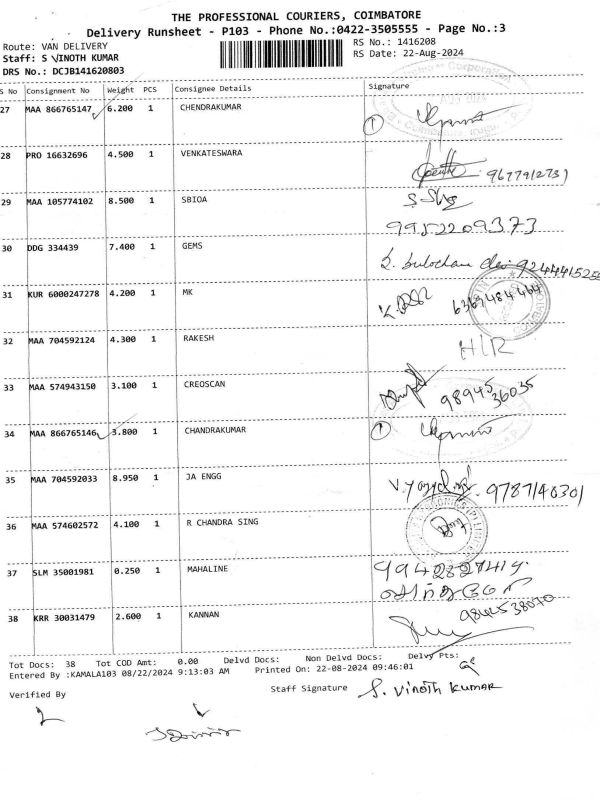 THE PROFESSIONAL COURIERS, COIMBATORE
Delivery Runsheet - P103 - Phone No.:0422-3505555 - Page No.:3
Route: VAN DELIVERY RS No.: 1416208
Staff: S VINOTH KUMAR RS Date: 22-Aug-2024
DRS No.: DCJB141620803
S No Consignment No Weight PCS Consignee Details Signature
27 MAA 866765147 6.200 1 CHENDRAKUMAR
28 PRO 16632696 4.500 1 VENKATESWARA
29 MAA 105774102 8.500 1 SBIOA
9952209373
30 DDG 334439 7.400 1 GEMS
31 KUR 6000247278 4.200 1 MK 6369484464
32 MAA 704592124 4.300 1 RAKESH
HLR
33 MAA 574943150 3.100 1 CREOSCAN 98945 36035
34 MAA 866765146 3.800 1 CHANDRAKUMAR
35 MAA 704592033 8.950 1 JA ENGG 9787140301
36 MAA 574602572 4.100 1 R CHANDRA SING
37 SLM 35001981 0.250 1 MAHALINE
38 KRR 30031479 2.600 1 KANNAN
Tot Docs: 38 Tot COD Amt: 0.00 Delvd Docs: Non Delvd Docs: Delvy Pts:
Entered By :KAMALA103 08/22/2024 9:13:03 AM Printed On: 22-08-2024 09:46:01
Verified By Staff Signature S. Vinoth Kumar